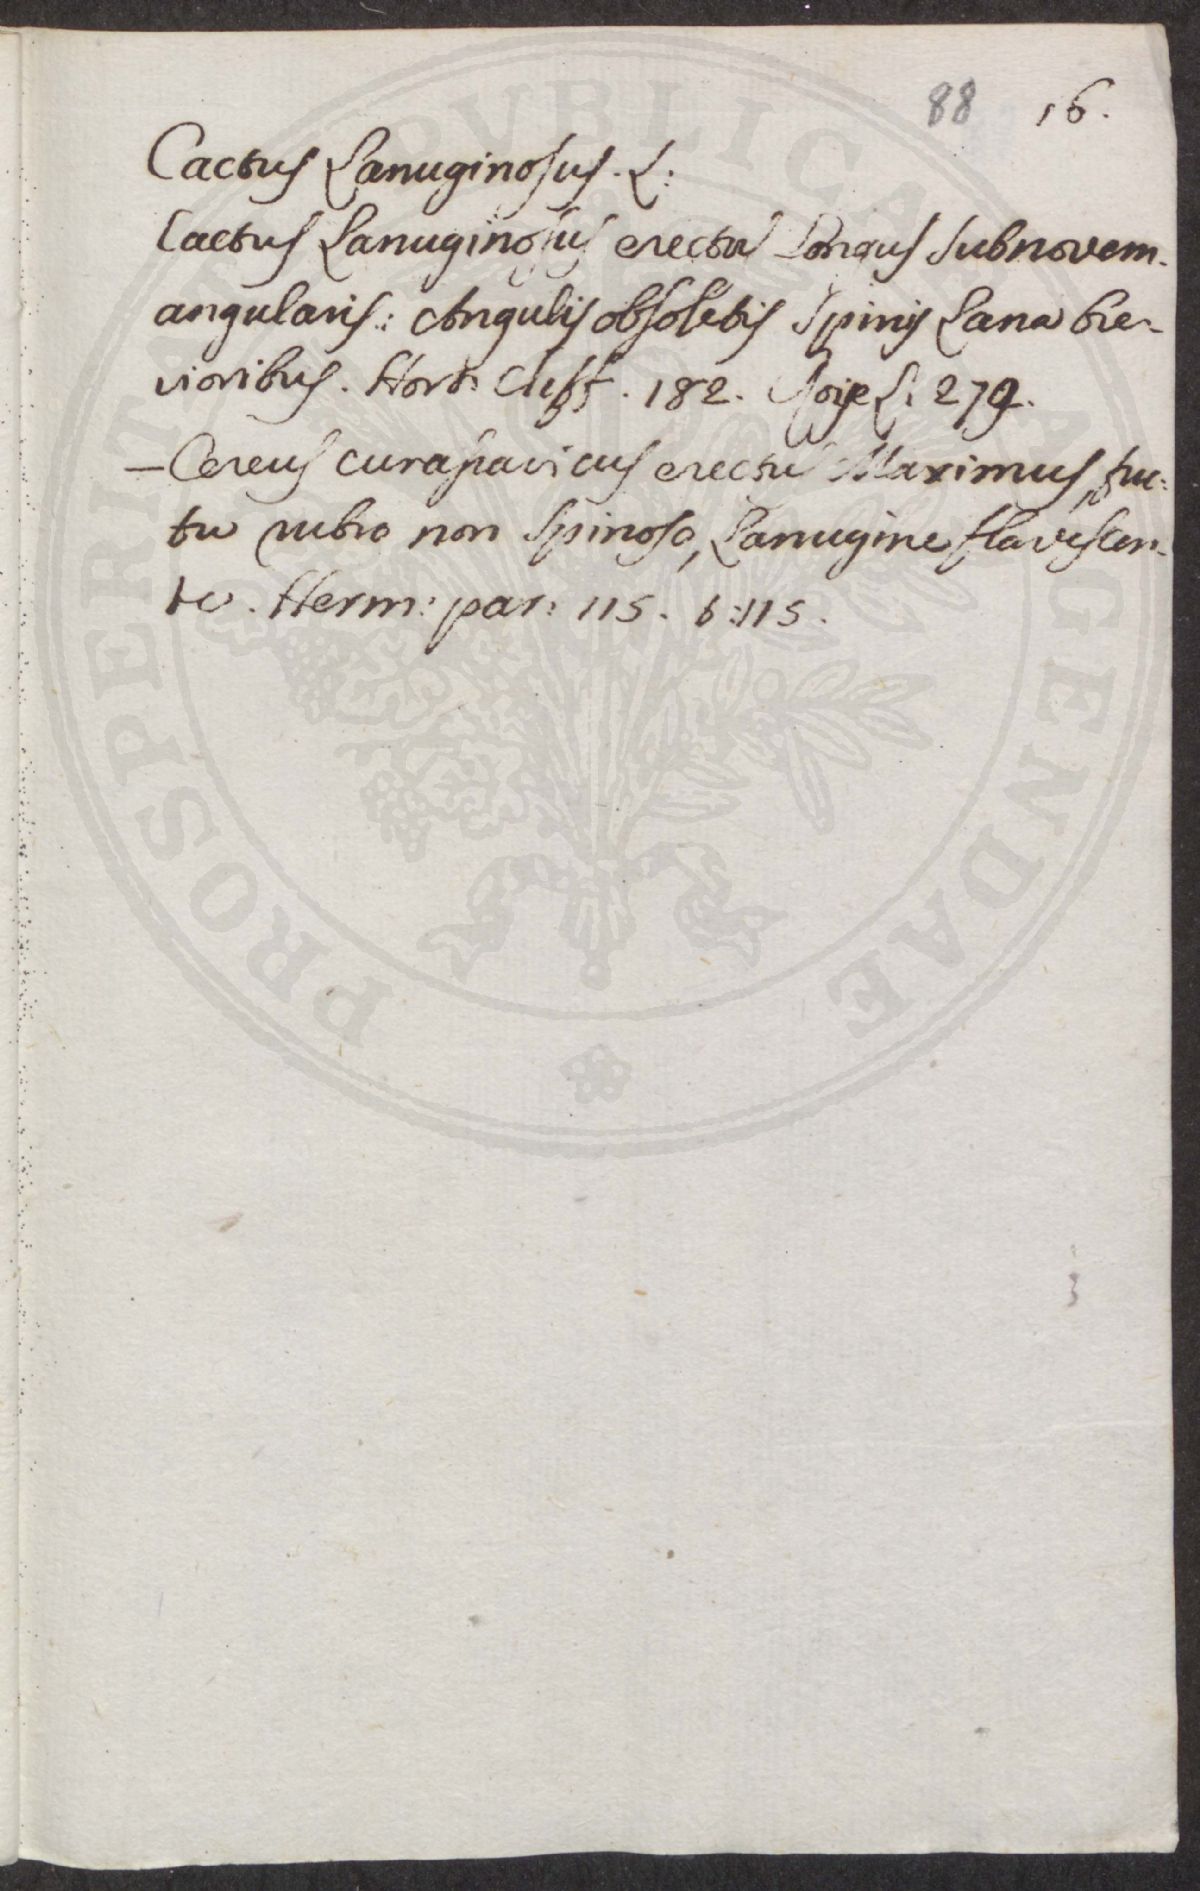 88 16.
Cactus Lanuginosus. L:
Cactus Lanuginosus erectus Longus Subnovem-
angularis: Angulis obsoletis Spinis Lana bre-
vioribus. Hort: Cliff. 182. L: 279.
— Cereus curasavicus erectus Maximus, fru:
tu rubro non Spinoso, Lanugine flavescen-
te. Herm: par: 115. t:115.
PROSPERITATI PUBLICAE AUGENDAE